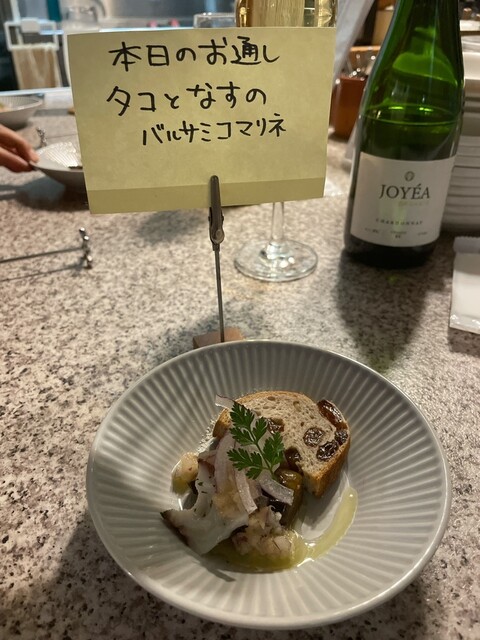 本日のお通し
タコとなすの
バルサミコマリネ
JOYÉA
CHARDONNAY